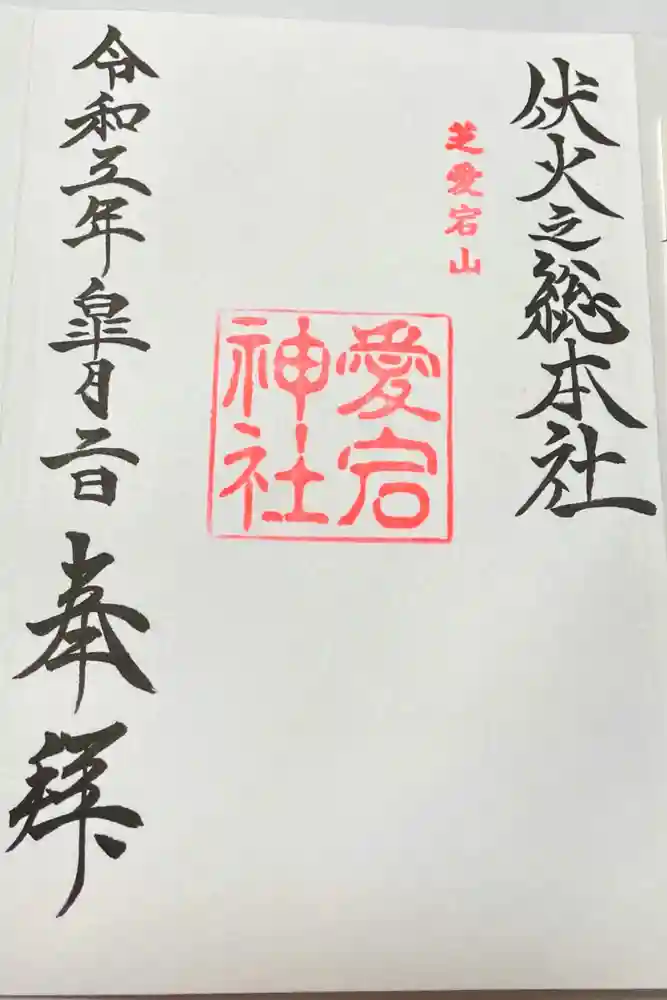 伏火之総本社
芝愛宕山
愛宕
神社
令和五年皐月二日奉拝